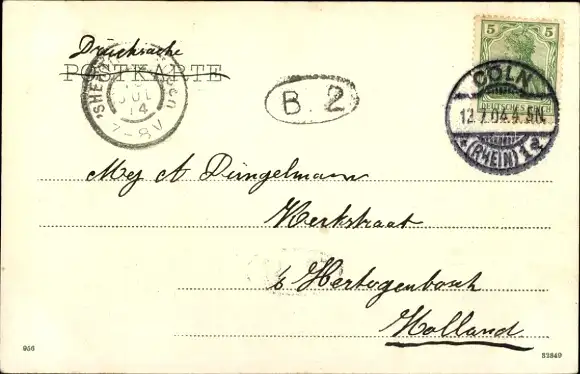 Drucksache
POSTKARTE
JUL
14
7-8V
B. 2
5
DEUTSCHES REICH
CÖLN
12.7.04.4-5N.
*(RHEIN)1
Mej A Dingelmann
Kerkstraat
s Hertogenbosch
Holland
956
53849